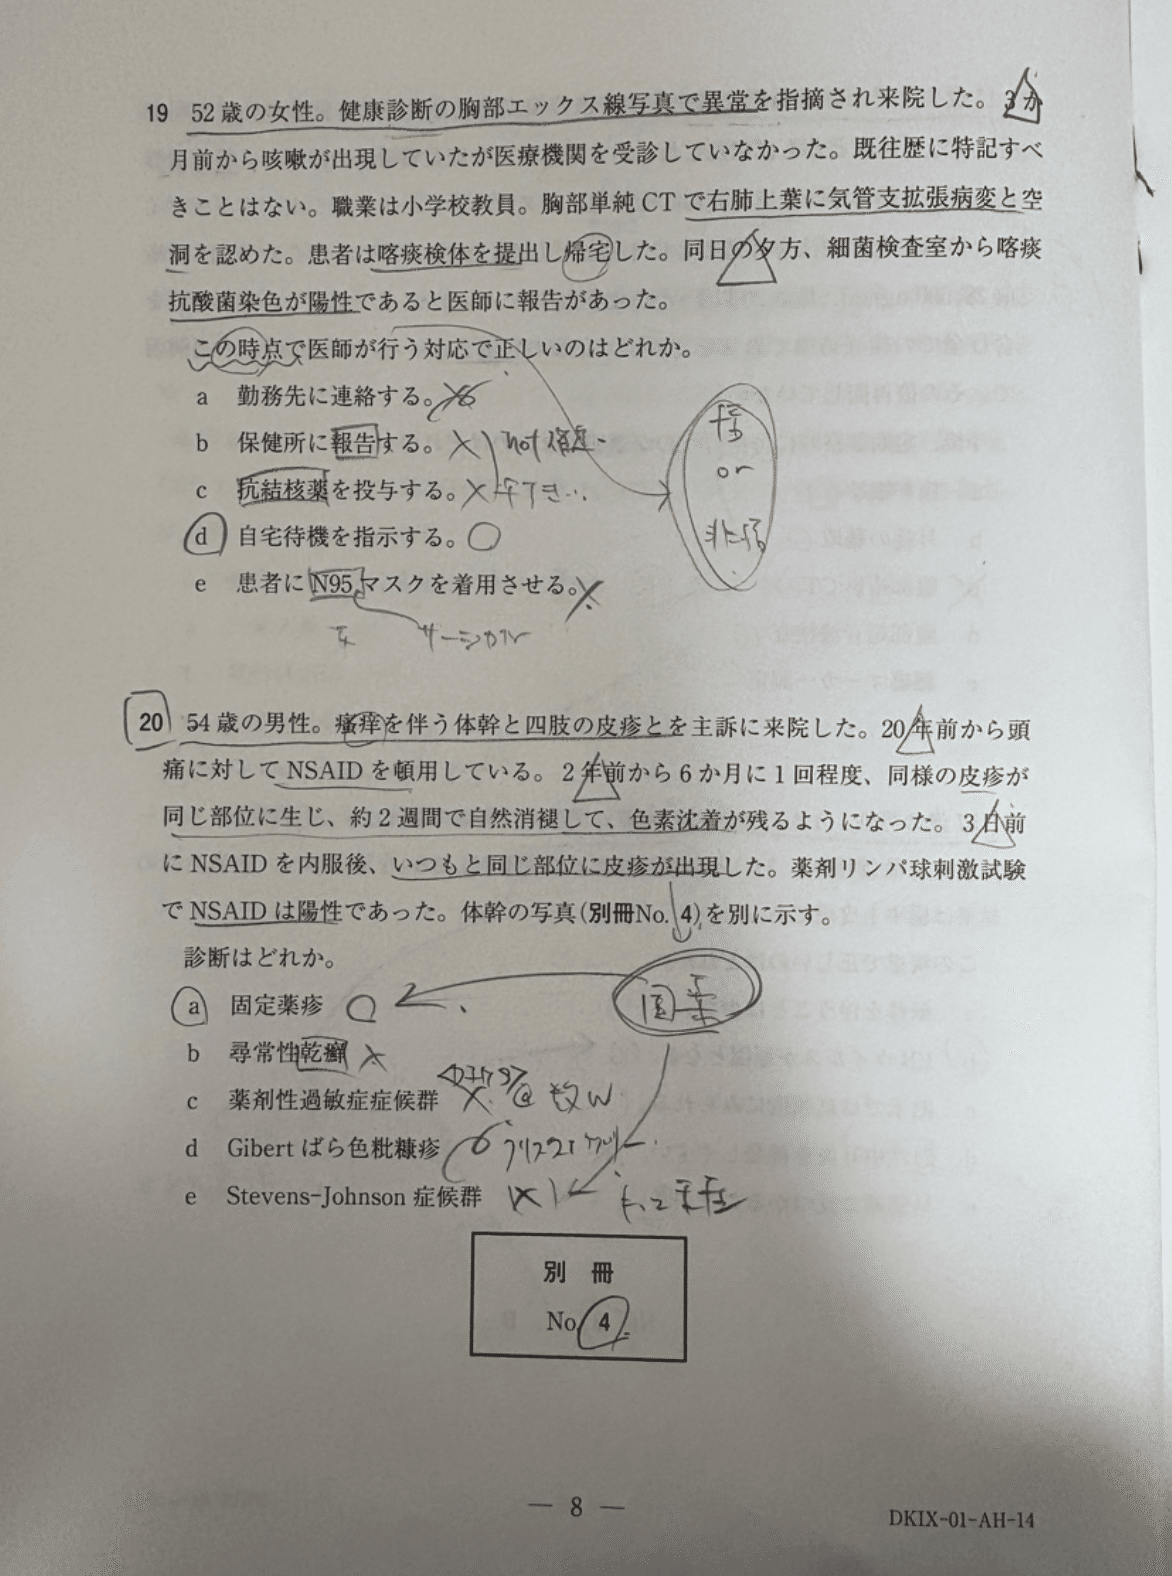 19 52歳の女性。健康診断の胸部エックス線写真で異常を指摘され来院した。3か
月前から咳嗽が出現していたが医療機関を受診していなかった。既往歴に特記すべ
きことはない。職業は小学校教員。胸部単純CTで右肺上葉に気管支拡張病変と空
洞を認めた。患者は喀痰検体を提出し帰宅した。同日の夕方、細菌検査室から喀痰
抗酸菌染色が陽性であると医師に報告があった。
この時点で医師が行う対応で正しいのはどれか。
a 勤務先に連絡する。
b 保健所に報告する。 × not
c 抗結核薬を投与する。×
or
d 自宅待機を指示する。○
e 患者にN95マスクを着用させる。×
サージカル
20 54歳の男性。瘙痒を伴う体幹と四肢の皮疹とを主訴に来院した。20年前から頭
痛に対してNSAIDを頓用している。2年前から6か月に1回程度、同様の皮疹が
同じ部位に生じ、約2週間で自然消褪して、色素沈着が残るようになった。3日前
にNSAIDを内服後、いつもと同じ部位に皮疹が出現した。薬剤リンパ球刺激試験
でNSAIDは陽性であった。体幹の写真(別冊No. 4)を別に示す。
診断はどれか。
a 固定薬疹 ○
固薬
b 尋常性乾癬 ×
c 薬剤性過敏症症候群 × @ 数W
d Gibertばら色粃糠疹
e Stevens-Johnson症候群 (×)
別 冊
No. 4
― 8 ―
DKIX-01-AH-14